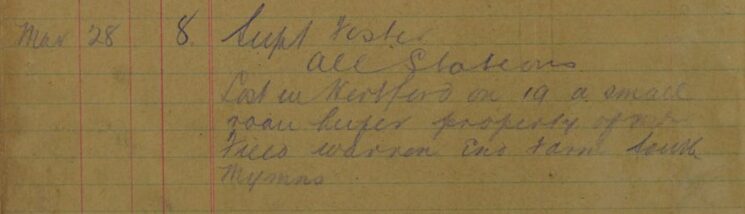 Mar 28 8. Supt Foster
All Stations
Lost in Hertford on 19 a small
roan heifer property of Mr
Warren End Farm South
Mymms